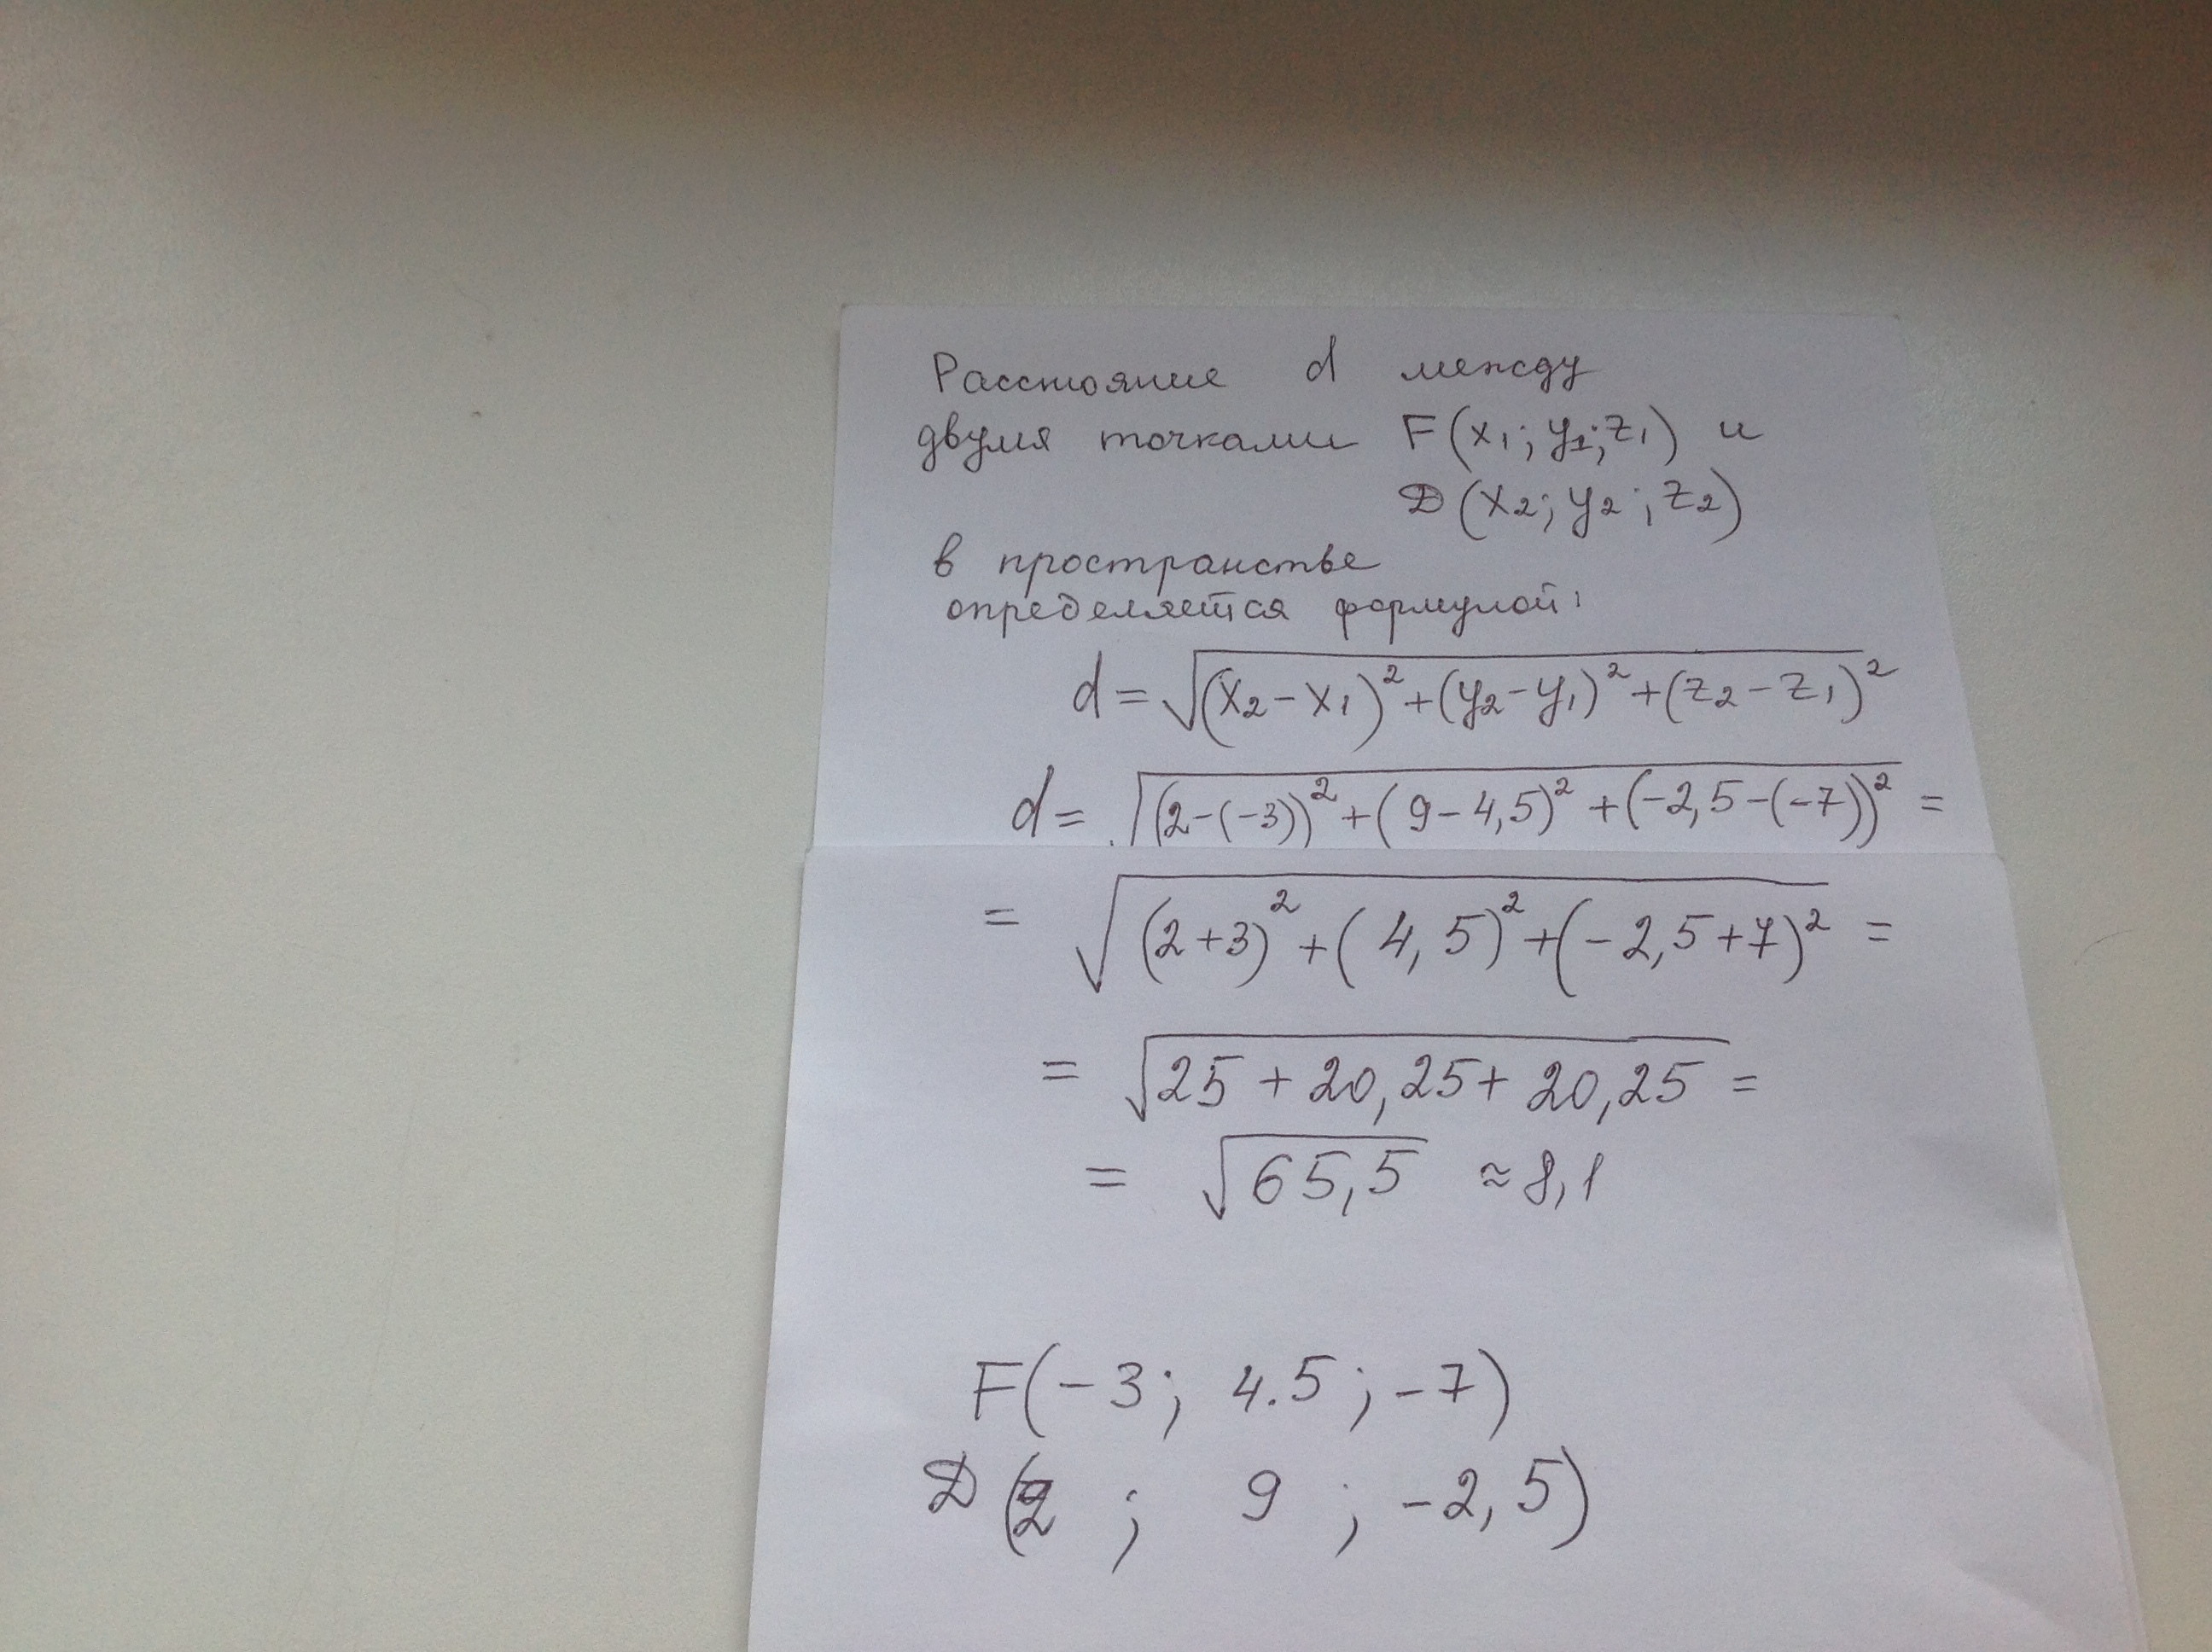 Расстояние d между
двумя точками F(x₁; y₁; z₁) и
D(x₂; y₂; z₂)
в пространстве
определяется формулой:
d = √((x₂ - x₁)² + (y₂ - y₁)² + (z₂ - z₁)²)
d = √((2-(-3))² + (9-4,5)² + (-2,5-(-7))²) =
= √((2+3)² + (4,5)² + (-2,5+7)²) =
= √(25 + 20,25 + 20,25) =
= √65,5 ≈ 8,1
F(-3; 4.5; -7)
D(2; 9; -2,5)